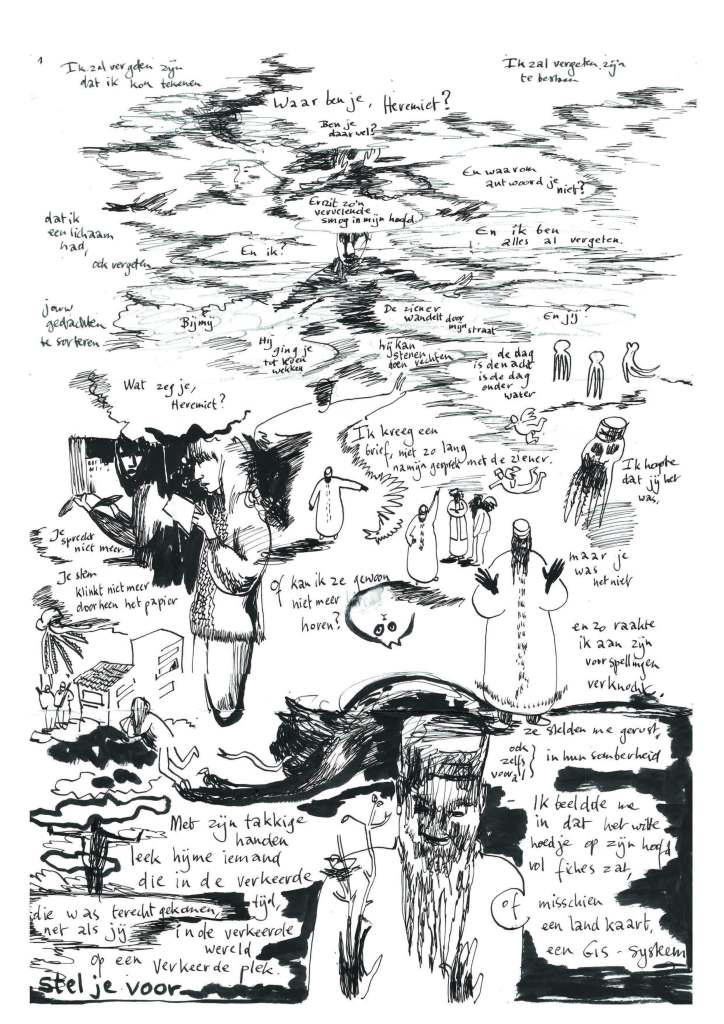 1
Ik zal vergeten zijn
dat ik kon tekenen
Ik zal vergeten zijn
te bestaan
Waar ben je, Heremiet?
Ben je
daar wel?
?
En waarom
antwoord je
niet?
Er zit zo'n
vervelende
smog in mijn hoofd
dat ik
een lichaam
had,
ook vergeten
En ik?
En ik ben
alles al vergeten.
jouw
gedachten
te sorteren
Bij mij
De ziener
wandelt door
mijn straat
En jij?
Hij
ging je
tot leven
wekken
hij kan
stenen
doen vechten
de dag
is de nacht
is de dag
onder
water
Wat zeg je,
Heremiet?
Ik kreeg een
brief, niet zo lang
na mijn gesprek met de ziener.
Ik hoopte
dat jij het
was,
Je
spreekt
niet meer.
maar je
was
het niet
Je stem
klinkt niet meer
doorheen het papier
of kan ik ze gewoon
niet meer
horen?
en zo raakte
ik aan zijn
voorspellingen
verknocht.
ze stelden me gerust,
ook
zelfs
vooral
in hun somberheid
Ik beeldde me
in dat het witte
hoedje op zijn hoofd
vol fiches zat,
of misschien
een landkaart,
een GIS-systeem
Met zijn takkige
handen
leek hij me iemand
die in de verkeerde
tijd,
die was terechtgekomen,
net als jij
in de verkeerde
wereld
op een verkeerde plek.
stel je voor